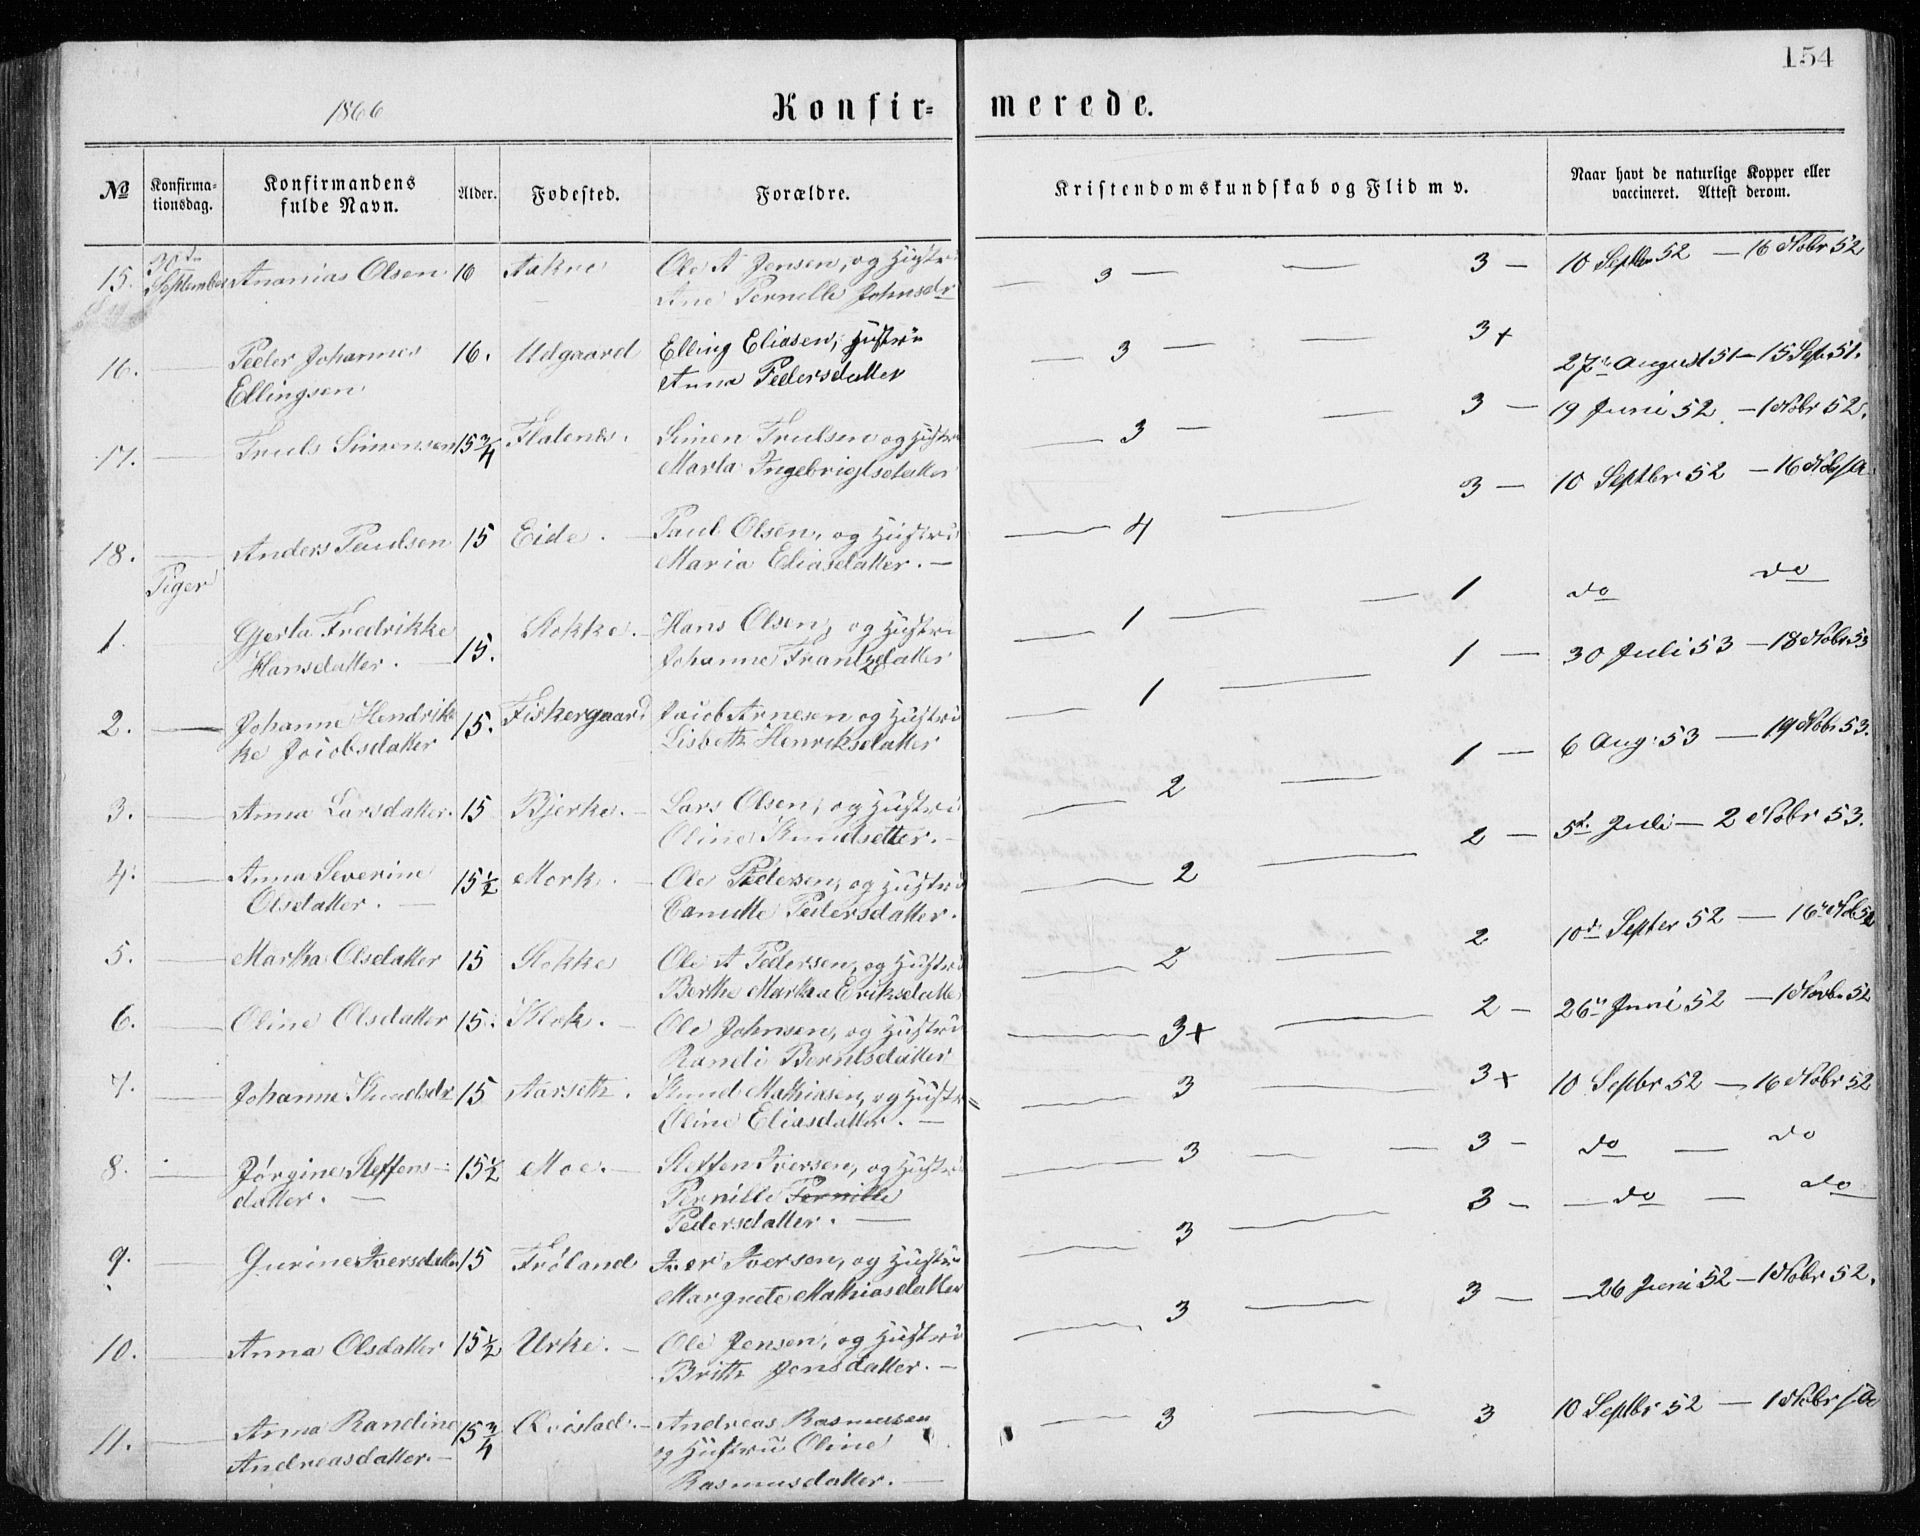 154
1866
Konfir=merede.
№ Konfirma=tionsdag. Konfirmandens fulde Navn. Alder. Fødested. Forældre. Kristendomskundskab og Flid m v. Naar havt de naturlige Kopper eller vaccineret. Attest derom.
15. 30te September Ananias Olsen 16 Aakne Ole A Jensen, og Hustru 3 — — 3 — 10 Septbr 52 — 16 Nobr 52
Ane Pernille Johnsdr
16. — Peder Johannes 16. Udgaard Elling Eliasen, Hustru — 3 — — 3+ 27de August 51 — 15 Sep. 51.
Ellingsen Anna Pedersdatter
17. — Truls Simensen 15 3/4 Flatenes. Simen Trulsen og Hustru — 3 — — 3 — 19 Juni 52 — 1 Nobr 52.
Marta Ingebrigtsdatter
18. — Anders Paulsen 15 Eide. — Paul Olsen, og Hustru — 4 — 3 — 10 Septbr 52 — 16 Nobr
Maria Eliasdatter. —
Piger
1. Gjerta Fredrikke 15. Stokke. — Hans Olsen, og Hustru — 1 — — 1 do do
Hansdatter. — Johanne Frantzdatter
2. — Johanne Hendrik 15. Fiskergaard Jacob Arnesen og Hustru — 1 — 1 — 30 Juli 53 — 18 Nobr 53
ke Jacobsdatter Lisbeth Henriksdatter
3. — Anna Larsdatter. 15 Bjerke. — Lars Olsen, og Hustru — 2 — 1 — 6 Aug: 53 — 19 Nobr 53.
Oline Knudsetter. —
4. — Anna Severine 15 1/2 Mork. — Ole Pedersen, og Hustru — 2 — 2 — 5te Juli — 2 Nobr 53.
Olsdatter. — Canutte Pedersdatter.
5. — Martha Olsdatter 15 Stokke Ole A Pedersen, og Hustru — 2 — 2 10de Septer 52 — 16de Nob 52
Berthe Martha Eriksdatter
6. — Oline Olsdatter 15. Klok. — Ole Johnsen, og Hustru — 3+ — 2 — 26de Juni 52 — 1 Novbr 52
Randi Berntsdatter
7. — Johanne Knudsdr 15 Aarseth. Knud Mathiasen, og Hustru — 3 — 3+ 10 Sepbr 52 — 16 Nobr 52
Oline Eliasdatter. —
8. — Jørgine Steffens- 15 1/2 Moe. — Steffen Iversen, og Hustru — 3 — — 3 — do — do
datter. — Pernille Pernille
Pedersdatter. —
9. — Gurine Iversdatter 15 Frøland Iver Iversen, og Hustru — 3 — 3 — — do — do
Margrete Mathiasdatter
10. — Anna Olsdatter 15 1/2 Urke. — Ole Jensen, og Hustru — 3 — 3 — — 26 Juni 52 — 1 Nobr 52.
Brithe Jensdatter. —
11. — Anna Randine 15 3/4 Qvistad. — Andreas Rasmusen — 3 — 3 10 Septbr 52 — 1 Nobr
Andreasdatter. — og Hustru Oline
Rasmusdatter. —